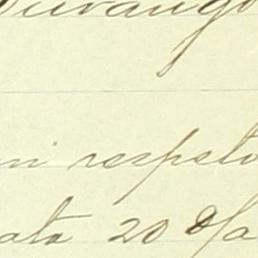 Durango
mi respeto
ata 20 %a